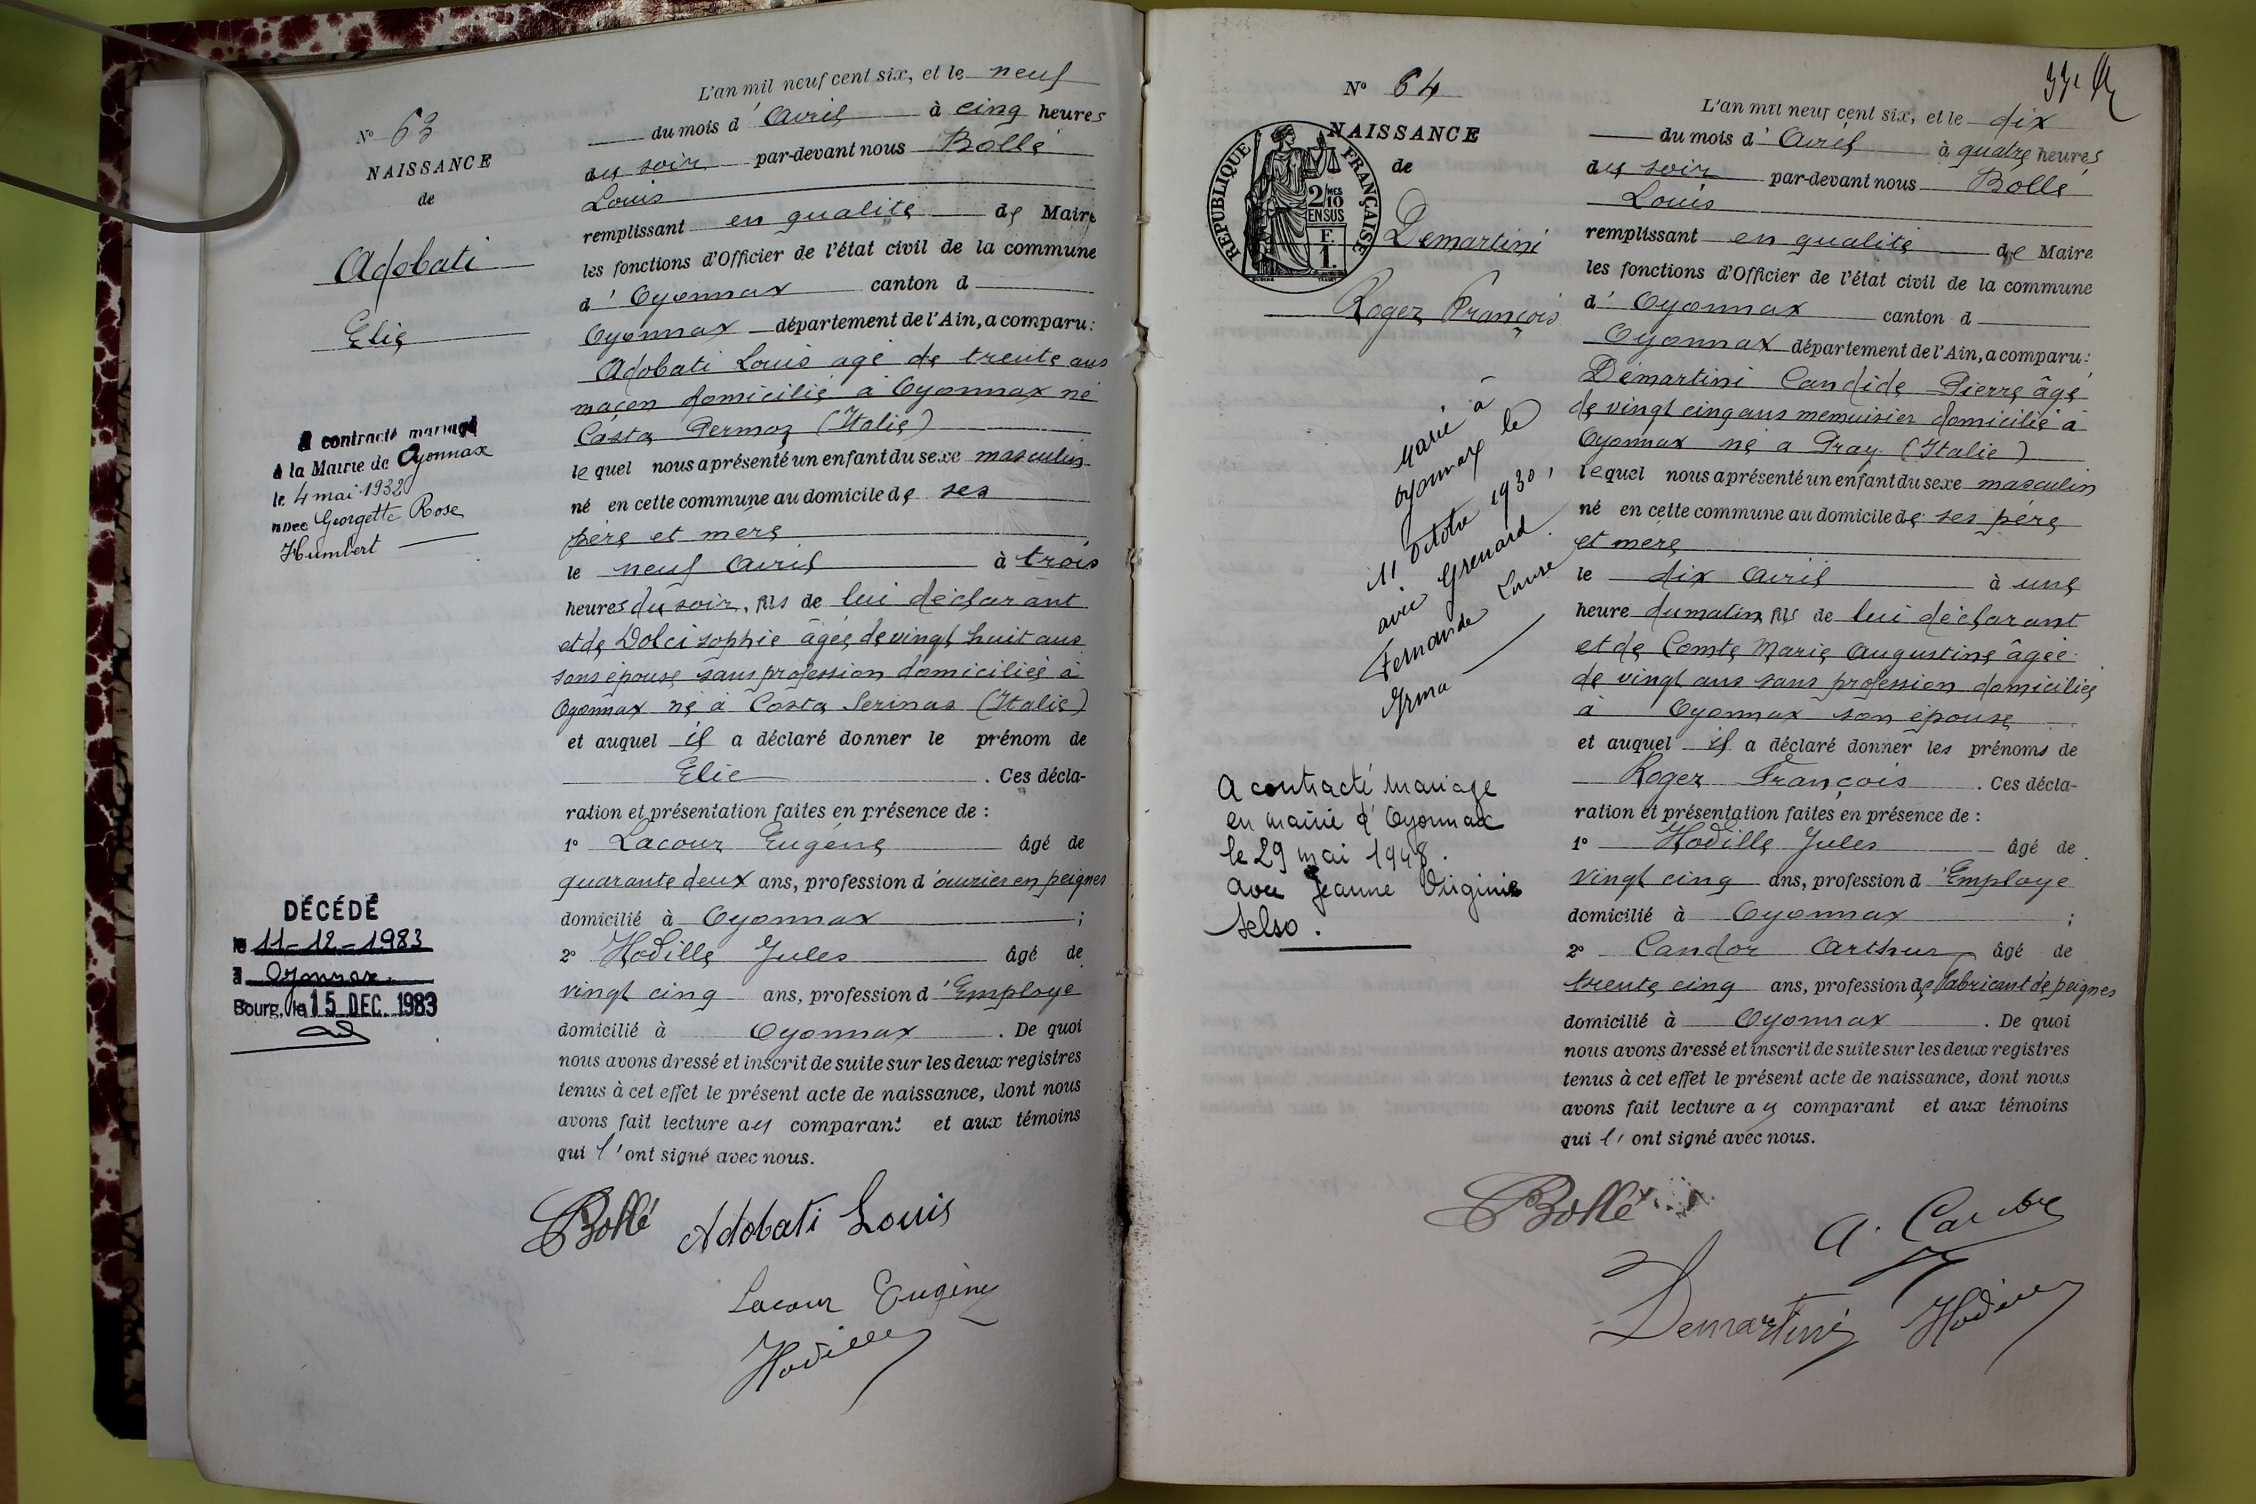 N° 63
NAISSANCE
de
Adobati
Elie
A contracté mariage
à la Mairie de Oyonnax
le 4 mai 1932
avec Georgette Rose
Humbert
DÉCÉDÉ
le 11-12-1983
à Oyonnax.
Bourg, le 15 DEC. 1983
L'an mil neuf cent six, et le neuf
du mois d'Avril à cinq heures
du soir par-devant nous Bollé
Louis
remplissant en qualité de Maire
les fonctions d'Officier de l'état civil de la commune
d'Oyonnax canton d
Oyonnax département de l'Ain, a comparu:
Adobati Louis agé de trente ans
maçon domicilié à Oyonnax né
Casta Dermoz (Italie)
lequel nous a présenté un enfant du sexe masculin
né en cette commune au domicile de ses
père et mère
le neuf Avril à trois
heures du soir, fils de lui déclarant
et de Dolci sophie âgée de vingt huit ans
sons épouse sans profession domiciliée à
Oyonnax né à Costa Serinas (Italie)
et auquel il a déclaré donner le prénom de
Elie. Ces décla-
ration et présentation faites en présence de :
1° Lacour Eugène âgé de
quarante deux ans, profession d'ouvrier en peignes
domicilié à Oyonnax ;
2° Hodille Jules âgé de
vingt cinq ans, profession d'Employe
domicilié à Oyonnax. De quoi
nous avons dressé et inscrit de suite sur les deux registres
tenus à cet effet le présent acte de naissance, dont nous
avons fait lecture au comparant et aux témoins
qui l'ont signé avec nous.
Bollé Adobati Louis
Lacour Eugène
Hodille
N° 64
NAISSANCE
de
REPUBLIQUE FRANÇAISE
2/10 MES
EN SUS
F.
1.
Demartini
Roger François
Marié à
Oyonnax le
11 Octobre 1930,
avec Grenard
Fernande Laure
Yrma
A contracté mariage
en mairie d'Oyonnax
le 29 mai 1948.
avec Jeanne Virginie
Selso.
L'an mil neuf cent six, et le dix
du mois d'Avril à quatre heures
du soir par-devant nous Bollé
Louis
remplissant en qualité de Maire
les fonctions d'Officier de l'état civil de la commune
d'Oyonnax canton d
Oyonnax département de l'Ain, a comparu:
Démartini Candide Pierre âgé
de vingt cinq ans menuisier domicilié à
Oyonnax né a Pray (Italie)
lequel nous a présenté un enfant du sexe masculin
né en cette commune au domicile de ses père
et mère
le dix Avril à une
heure du matin fils de lui déclarant
et de Comte Marie Augustine âgée
de vingt ans sans profession domiciliée
à Oyonnax son épouse
et auquel il a déclaré donner les prénoms de
Roger François. Ces décla-
ration et présentation faites en présence de :
1° Hodille Jules âgé de
vingt cinq ans, profession d'Employe
domicilié à Oyonnax ;
2° Candor Arthur âgé de
trente cinq ans, profession de fabricant de peignes
domicilié à Oyonnax. De quoi
nous avons dressé et inscrit de suite sur les deux registres
tenus à cet effet le présent acte de naissance, dont nous
avons fait lecture au comparant et aux témoins
qui l'ont signé avec nous.
Bollé
Demartini Hodille